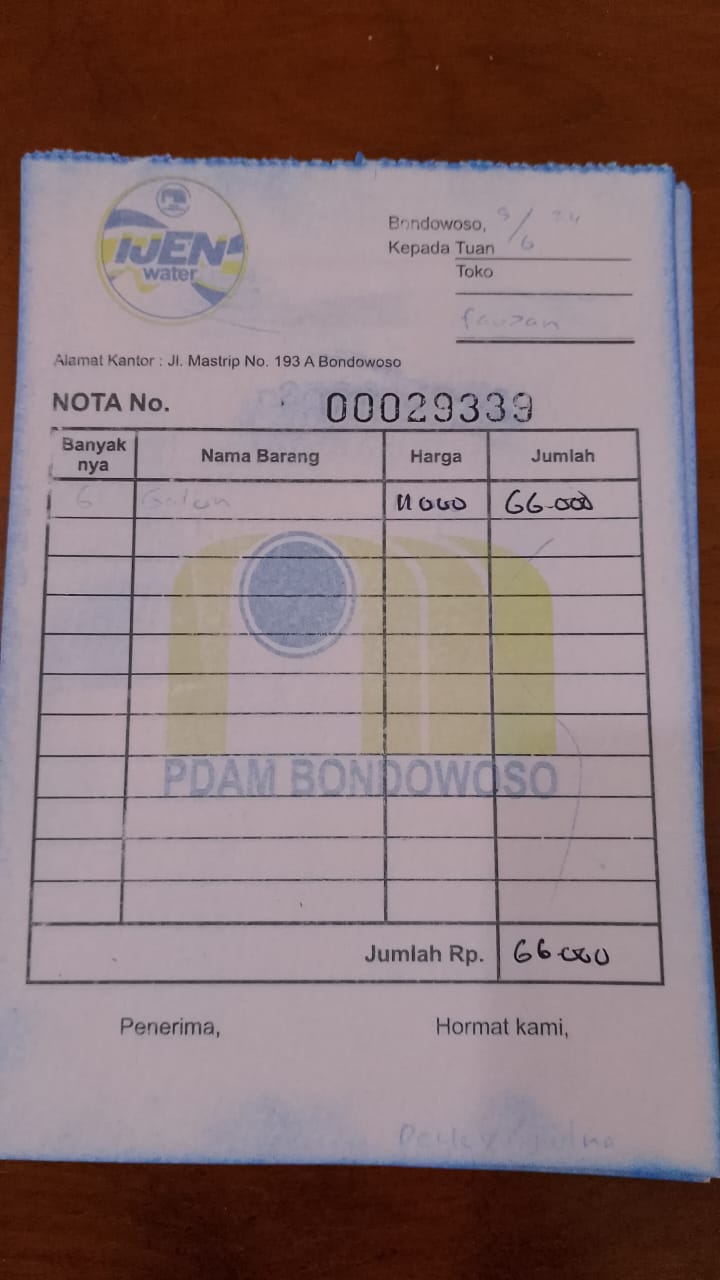 IJEN
water
Bondowoso, 5/6 24
Kepada Tuan
Toko
fauzan
Alamat Kantor : Jl. Mastrip No. 193 A Bondowoso
NOTA No. 00029339
Banyak nya Nama Barang Harga Jumlah
6 Galon 11000 66.000
PDAM BONDOWOSO
Jumlah Rp. 66.000
Penerima, Hormat kami,